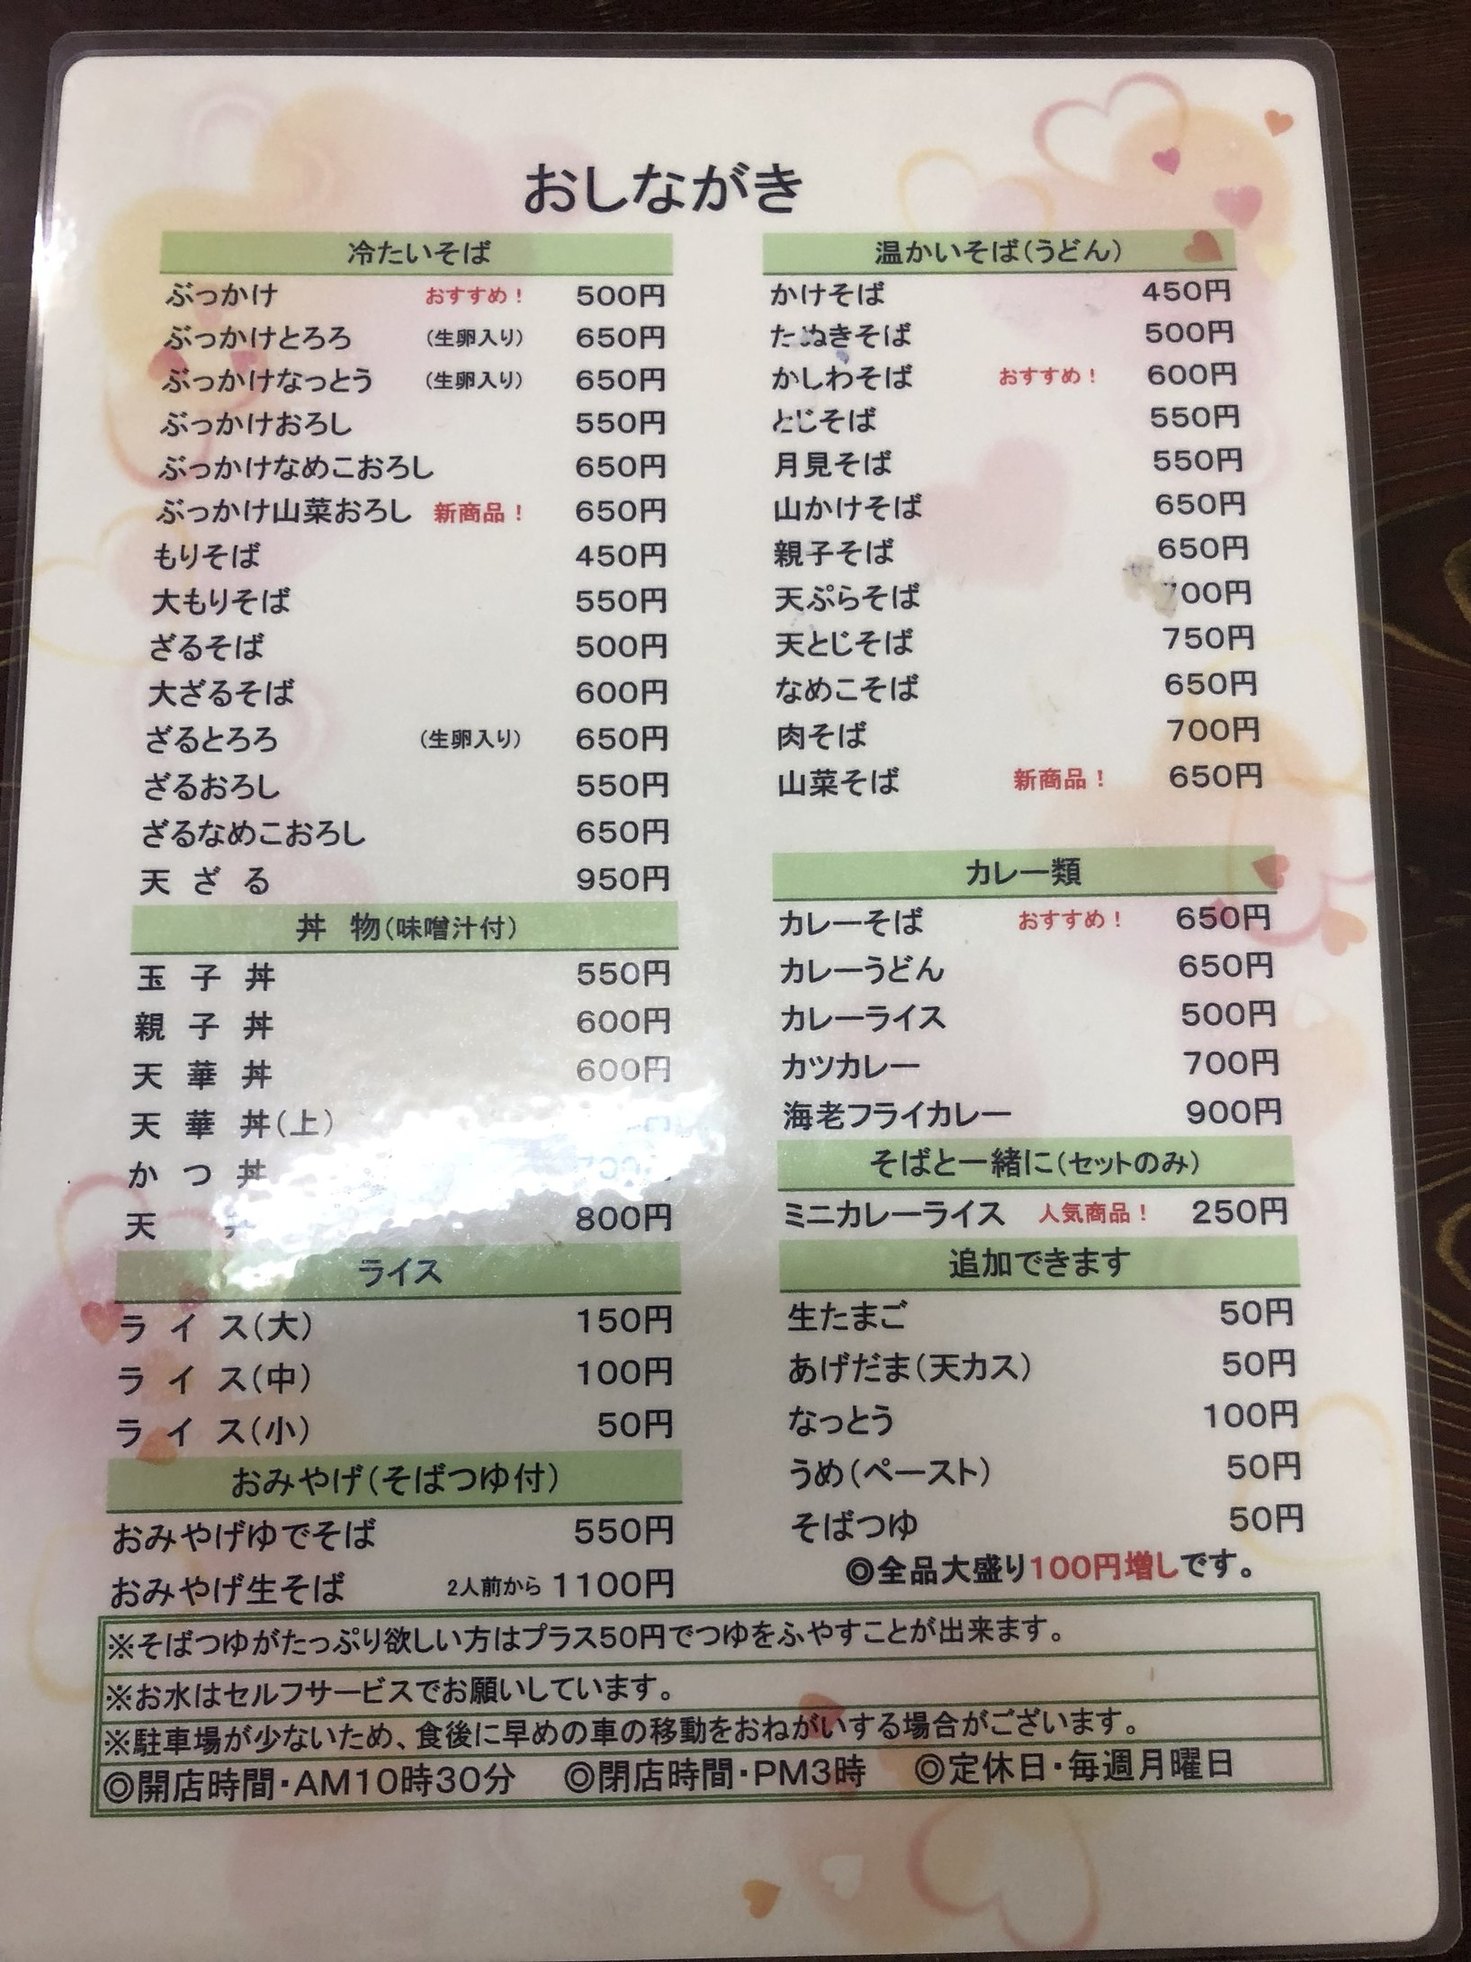 おしながき
冷たいそば
ぶっかけ おすすめ！ 500円
ぶっかけとろろ (生卵入り) 650円
ぶっかけなっとう (生卵入り) 650円
ぶっかけおろし 550円
ぶっかけなめこおろし 650円
ぶっかけ山菜おろし 新商品！ 650円
もりそば 450円
大もりそば 550円
ざるそば 500円
大ざるそば 600円
ざるとろろ (生卵入り) 650円
ざるおろし 550円
ざるなめこおろし 650円
天ざる 950円
丼 物(味噌汁付)
玉子丼 550円
親子丼 600円
天華丼 600円
天華丼(上)
かつ丼
天 800円
ライス
ライス(大) 150円
ライス(中) 100円
ライス(小) 50円
おみやげ(そばつゆ付)
おみやげゆでそば 550円
おみやげ生そば 2人前から 1100円
温かいそば(うどん)
かけそば 450円
たぬきそば 500円
かしわそば おすすめ！ 600円
とじそば 550円
月見そば 550円
山かけそば 650円
親子そば 650円
天ぷらそば 700円
天とじそば 750円
なめこそば 650円
肉そば 700円
山菜そば 新商品！ 650円
カレー類
カレーそば おすすめ！ 650円
カレーうどん 650円
カレーライス 500円
カツカレー 700円
海老フライカレー 900円
そばと一緒に(セットのみ)
ミニカレーライス 人気商品！ 250円
追加できます
生たまご 50円
あげだま(天カス) 50円
なっとう 100円
うめ(ペースト) 50円
そばつゆ 50円
◎全品大盛り100円増しです。
※そばつゆがたっぷり欲しい方はプラス50円でつゆをふやすことが出来ます。
※お水はセルフサービスでお願いしています。
※駐車場が少ないため、食後に早めの車の移動をおねがいする場合がございます。
◎開店時間・AM10時30分 ◎閉店時間・PM3時 ◎定休日・毎週月曜日